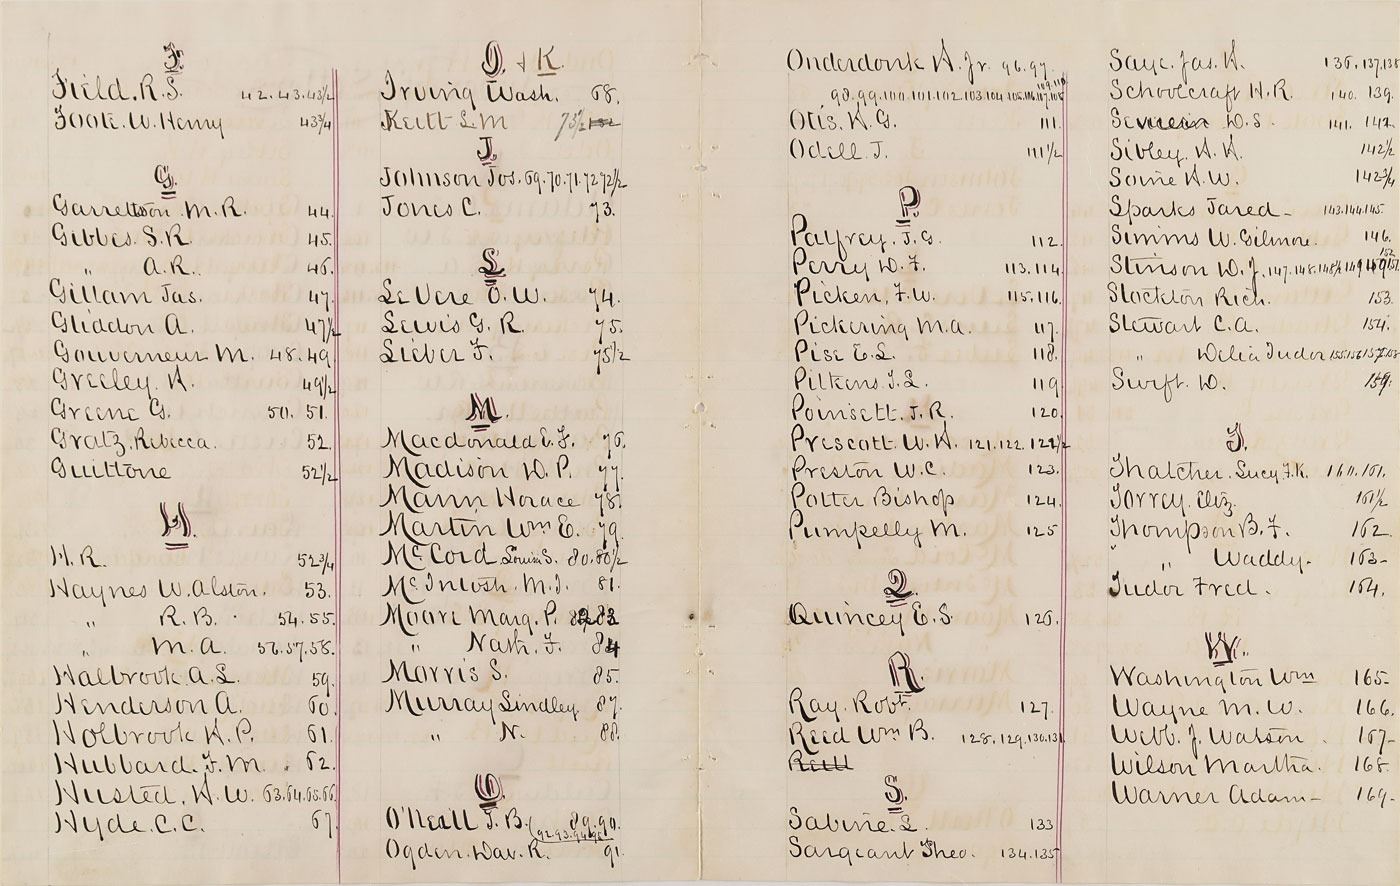 F.
Field. R. S. 42. 43. 43½
Foote. W. Henry 43¾
G.
Garrettson. M. R. 44.
Gibbes. S. R. 45.
" A. R. 46.
Gillam Jas. 47.
Gliddon A. 47½
Gouverneur M. 48. 49.
Greeley. H. 49½
Greene G. 50. 51.
Gratz, Rebecca. 52.
Guittone 52½
H.
H. R. 52¾
Haynes W. Alston. 53.
" R. B. 54. 55.
" M. A. 56. 57. 58.
Halbrook. A. L. 59.
Henderson A. 60.
Holbrook H. P. 61.
Hubbard. F. M. 62.
Husted, H. W. 63. 64. 65. 66.
Hyde. C. C. 67.
& K.
Irving Wash. 68.
Keitt L. M 73½
J.
Johnson Jos. 69. 70. 71. 72 72½
Jones C. 73.
L
Le Vere O. W. 74.
Lewis G. R. 75.
Lieber F. 75½
M.
Macdonald E. F. 76.
Madison D. P. 77.
Mann Horace 78.
Martin Wm E. 79.
McCord Louisa S. 80. 80½
McIntosh. M. J. 81.
Moore Marg. P. 82 83
" Nath. F. 84
Morris S. 85.
Murray Lindley 87.
" N. 88.
O.
O'Neall J. B. 89. 90.
(92. 93. 94
Ogden. Dav. R. 91.
Onderdonk H. Jr. 96. 97.
98. 99. 100. 101. 102. 103. 104 105. 106. 107. 108
109. 110
Otis. H. G. 111.
Odell J. 111½
P.
Palfrey. J. G. 112.
Perry W. F. 113. 114.
Picken. F. W. 115. 116.
Pickering M. A. 117.
Pise C. C. 118.
Pitkens. J. L. 119.
Poinsett. J. R. 120.
Prescott W. H. 121. 122. 122½
Preston W. C. 123.
Potter Bishop 124.
Pumpelly M. 125
Q.
Quincey E. S. 126.
R.
Ray. Robt. 127.
Reed Wm B. 128. 129. 130. 131
Keitt
S.
Sabine. L. 133
Sargeant Theo. 134. 135
Saye. Jas. H. 136. 137. 138
Schoolcraft H. R. 140. 139.
W. S. 141. 142.
Sibley. H. H. 142½
Some H. W. 142¾
Sparks Jared - 143. 144. 145.
Simms W. Gilmore. 146.
Stinson W. J. 147. 148. 148½ 149 150 151
152
Stockton Rich. 153.
Stewart C. A. 154.
" Delia Tudor 155. 156 157. 158
Swift. D. 159.
T.
Thatcher. Lucy F. K. 160. 161.
Torrey Eliz. 161½
Thompson B. F. 162.
" Waddy. 163-
Tudor Fred. 164.
W.
Washington Wm 165-
Wayne M. W. 166.
Webb. J. Watson. 167-
Wilson Martha. 168.
Warner Adam- 169-